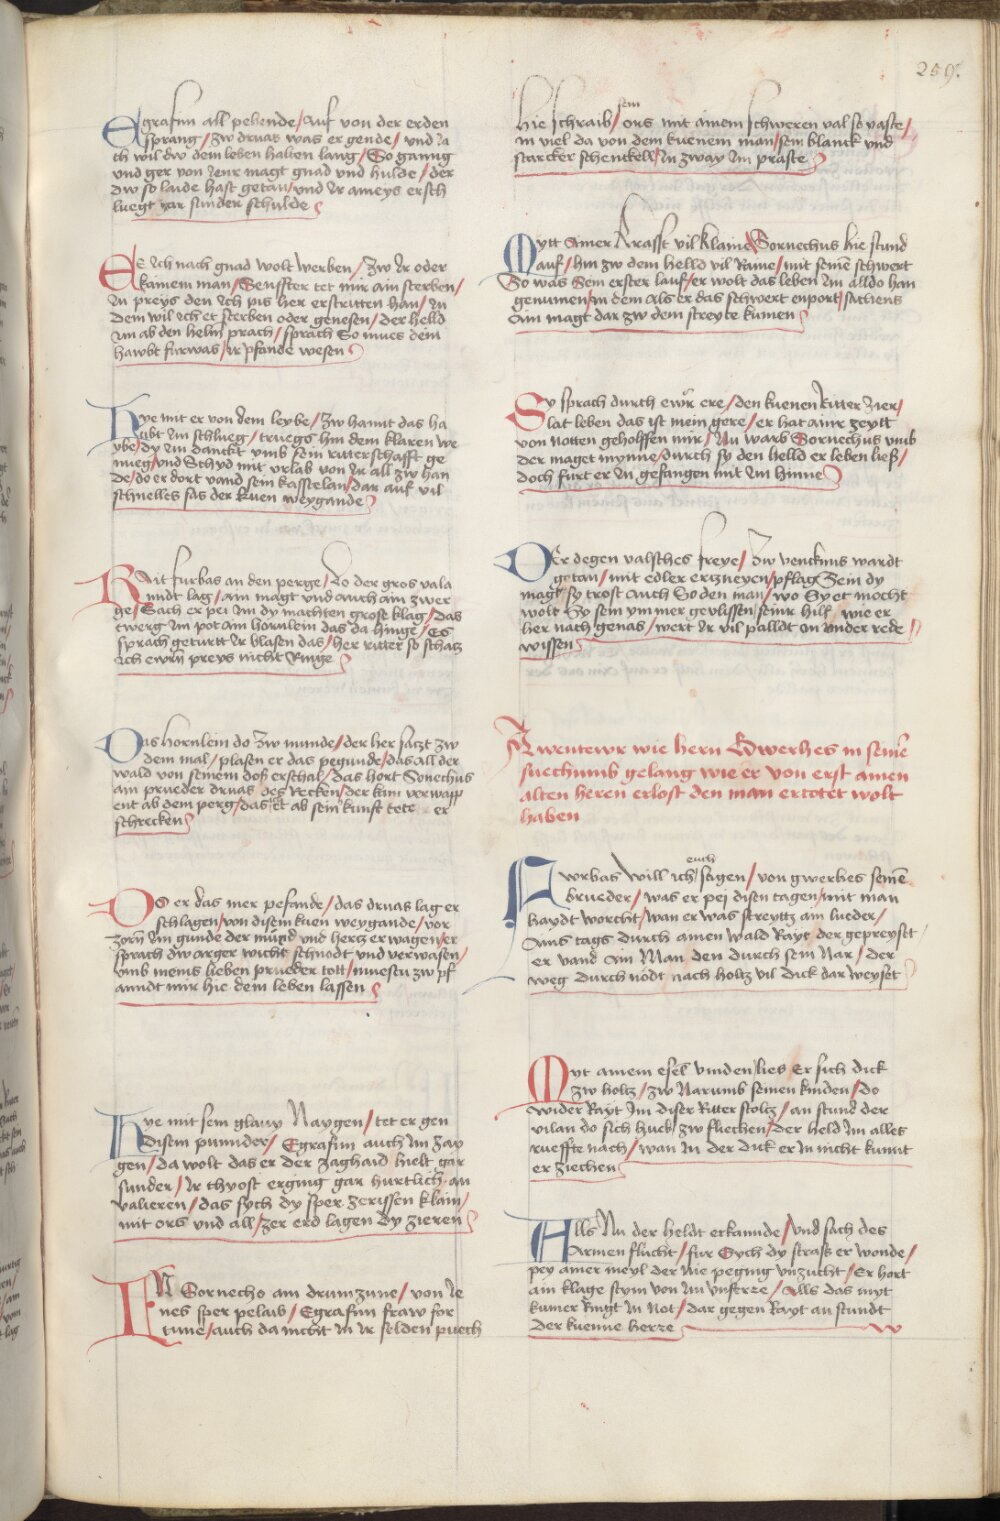 259.
Egrafun all pehende / auf von der erden
sprang / zw druas was er gende / und Ja
ch wil dw dem leben halten lang / So ganng
und ger von Jenr magt gnad und hulde / der
dw so laide hast getan / und Ir ameys ersch
luegt gar sunder schulde
Ee Ich nach gnad wolt werben / Zw Ir oder
kainem man / Senffter tet mir ain sterben /
In preys den Ich pis her erstritten han / In
dem wil Ich et sterben oder genesen / der helld
Im ab den helm prach / sprach So mues dein
hawbt furwas / Ir pfande wesen
Hye mit er von dem leybe / zw hamit das ha
ubt Im schlueg / truegs hin dem klaren we
ybe / dy Im danckt umb sein ritterschafft ge
nueg / und Schyd mit urlab von Ir all zw han
de / do er dort vand sein kasstelan / dar auf vil
schnelles sas der kuen weygande
Rait furbas an den perge / do der gros vala
nndt lag / ain magt und auch ain zwer
ge / Sach er pei Im dy machten grose klag / das
twerg Im pot ain hornlein das da hinge / Es
sprach geturtt Ir blasen das / her ritter so schatz
Ich ewrn preys nicht Ringe
Das hornlein do Zw munde / der her satzt zw
dem mal / plasen er das pegunde / das all der
wald von seinem dos erschal / das hort Sonechus
ain prueder druas des Recken / der kim verwapp
ent ab dem perg / das et ab sein kunst tete er
schrecken
Do er das mer pefande / das druas lag er
schlagen / von disem kuen weygande / vor
zorn Im gunde der mund und hertz erwagen / er
sprach dw arger wicht schnodt und verwasen /
umb meins lieben prueder tott / muestu zw pf
anndt mir hie dem leben lassen
Hye mit sein glauy Naygen / tet er gen
disem punnder / Egrafun auch Im zay
gen / da wolt das er der zaghaid hielt gar
sunder / Ir thyost erging gar hurtlich an
valieren / das sych dy sper zerissen klain /
mit ors und all / zer erd lagen dy zieren
IN Sornecho ain drumzune / von Je
nes sper pelaib / Egrafun fraw for
tune / auch da nicht In Ir selden puech
hie schraib / sein ors mit ainem schweren val so vaste /
In viel da von dem kuenem man / sein blanck und
starcker schenckell / In zway Im praste
Mytt Ainer krafft vil klaine Sornechus hie stund
auf / hin zw dem helld vil Raine / mit seine schwert
So was Sein erster lauf / er wolt das leben Im alldo han
genumen / In dem als er das schwert enport / sachens
Ain magt dar zw dem streyte kumen
Sy sprach durch ewr ere / den kuenen Ritter Zier /
Slat leben das ist mein gere / er hat ainr zeytt
von notten geholffen mir / Nu warb Sornechus umb
der maget mynne / durch sy den helld er leben lies /
doch furt er In gefangen mit Im hinne
Der degen valsches freye / Zw venckmus wardt
getan / mit edler ertzneyen / pflag Sein dy
magt / sy trost auch So den man / wo Sy et mocht
wolt Sy sein ymmer gevlissen / seinr hilf / wie er
her nach genas / wert Ir vil palldt in under rede
wissen
Awentewr wie hern Gwerhes in seine
suechumb gelang wie er von erst ainen
alten heren erlost den man ertotet wolt
haben
Furbas will ich euch / sagen / von gwerhes seine
brueder / was er pei disen tagen / mit man
haydt worcht / wan er was streyttz ain lueder /
Ains tags durch ainen wald Rayt der gepreyset /
er vand Ain Man den durch sein Nar / der
weg durch nodt nach holtz vil dick dar weyset
Myt ainem esel vinden lies er sich dick
zw holtz / zw Narumb seinen kinden / do
wider Rayt Im diser Ritter stoltz / an stund der
vilan do sich hueb zw fliechen / der held Im alles
rueffte nach / wan In der dick er In nicht kunnt
erziechen
Alls Nu der heldt erkannde / und sach des
Armen flucht / fur Sych dy strass er wonde /
pey ainer meyl der nie peging unzucht / Er hort
ain klage stym von Im unferre / Alls das myt
kumer Ringt In Not / dar gegen Rayt an stundt
der kuenne herre